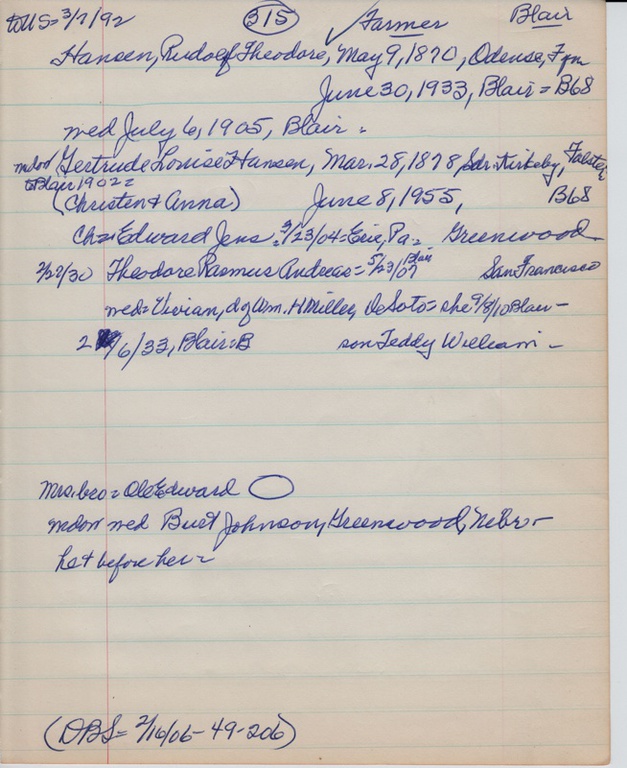 to US=3/7/92 (315) ✓Farmer Blair
Hansen, Rudolf Theodore, May 9, 1870, Odense, Fyn
June 30, 1933, Blair=B68
med July 6, 1905, Blair=
Gertrude Louise Hansen, Mar. 28, 1878, Sdr. Kirkeby, Falster
to Blair 1902=
(Christen & Anna) June 8, 1955, B68
Ch=Edward Jens=3/23/04=Eric, Pa= Greenwood
2/27/30 Theodore Rasmus Andreas=5/23/07 Blair San Francisco
med=Vivian, d of Wm. H Miller, DeSoto=she 9/8/10 Blair-
2 /6/33, Blair=B son Teddy William-
Mrs. bro=Ole Edward
med Burt Johnson, Greenwood, Nebr-
he + before her=
(DBS=2/16/06-49-206)